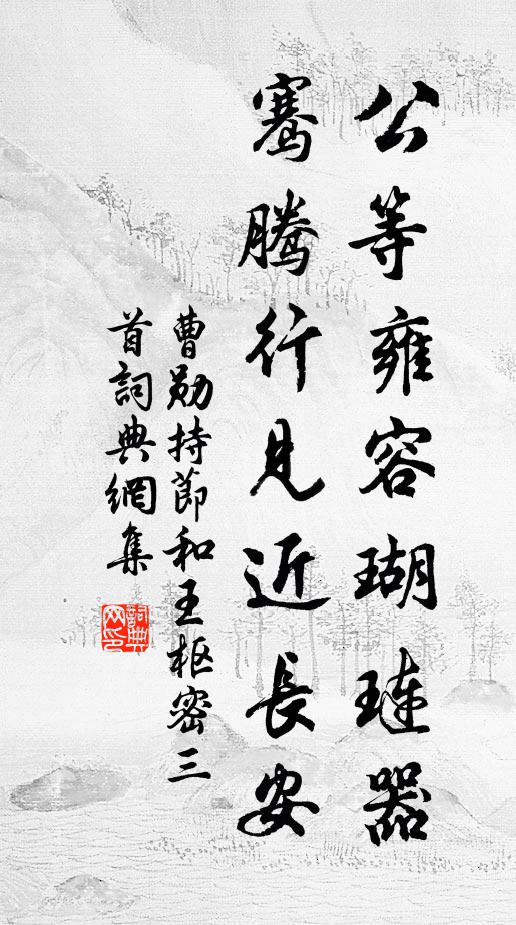 公等雍容瑚璉器
騫騰行見近長安
曹勛持節和王枢密三
首詞典網集
詞典網印